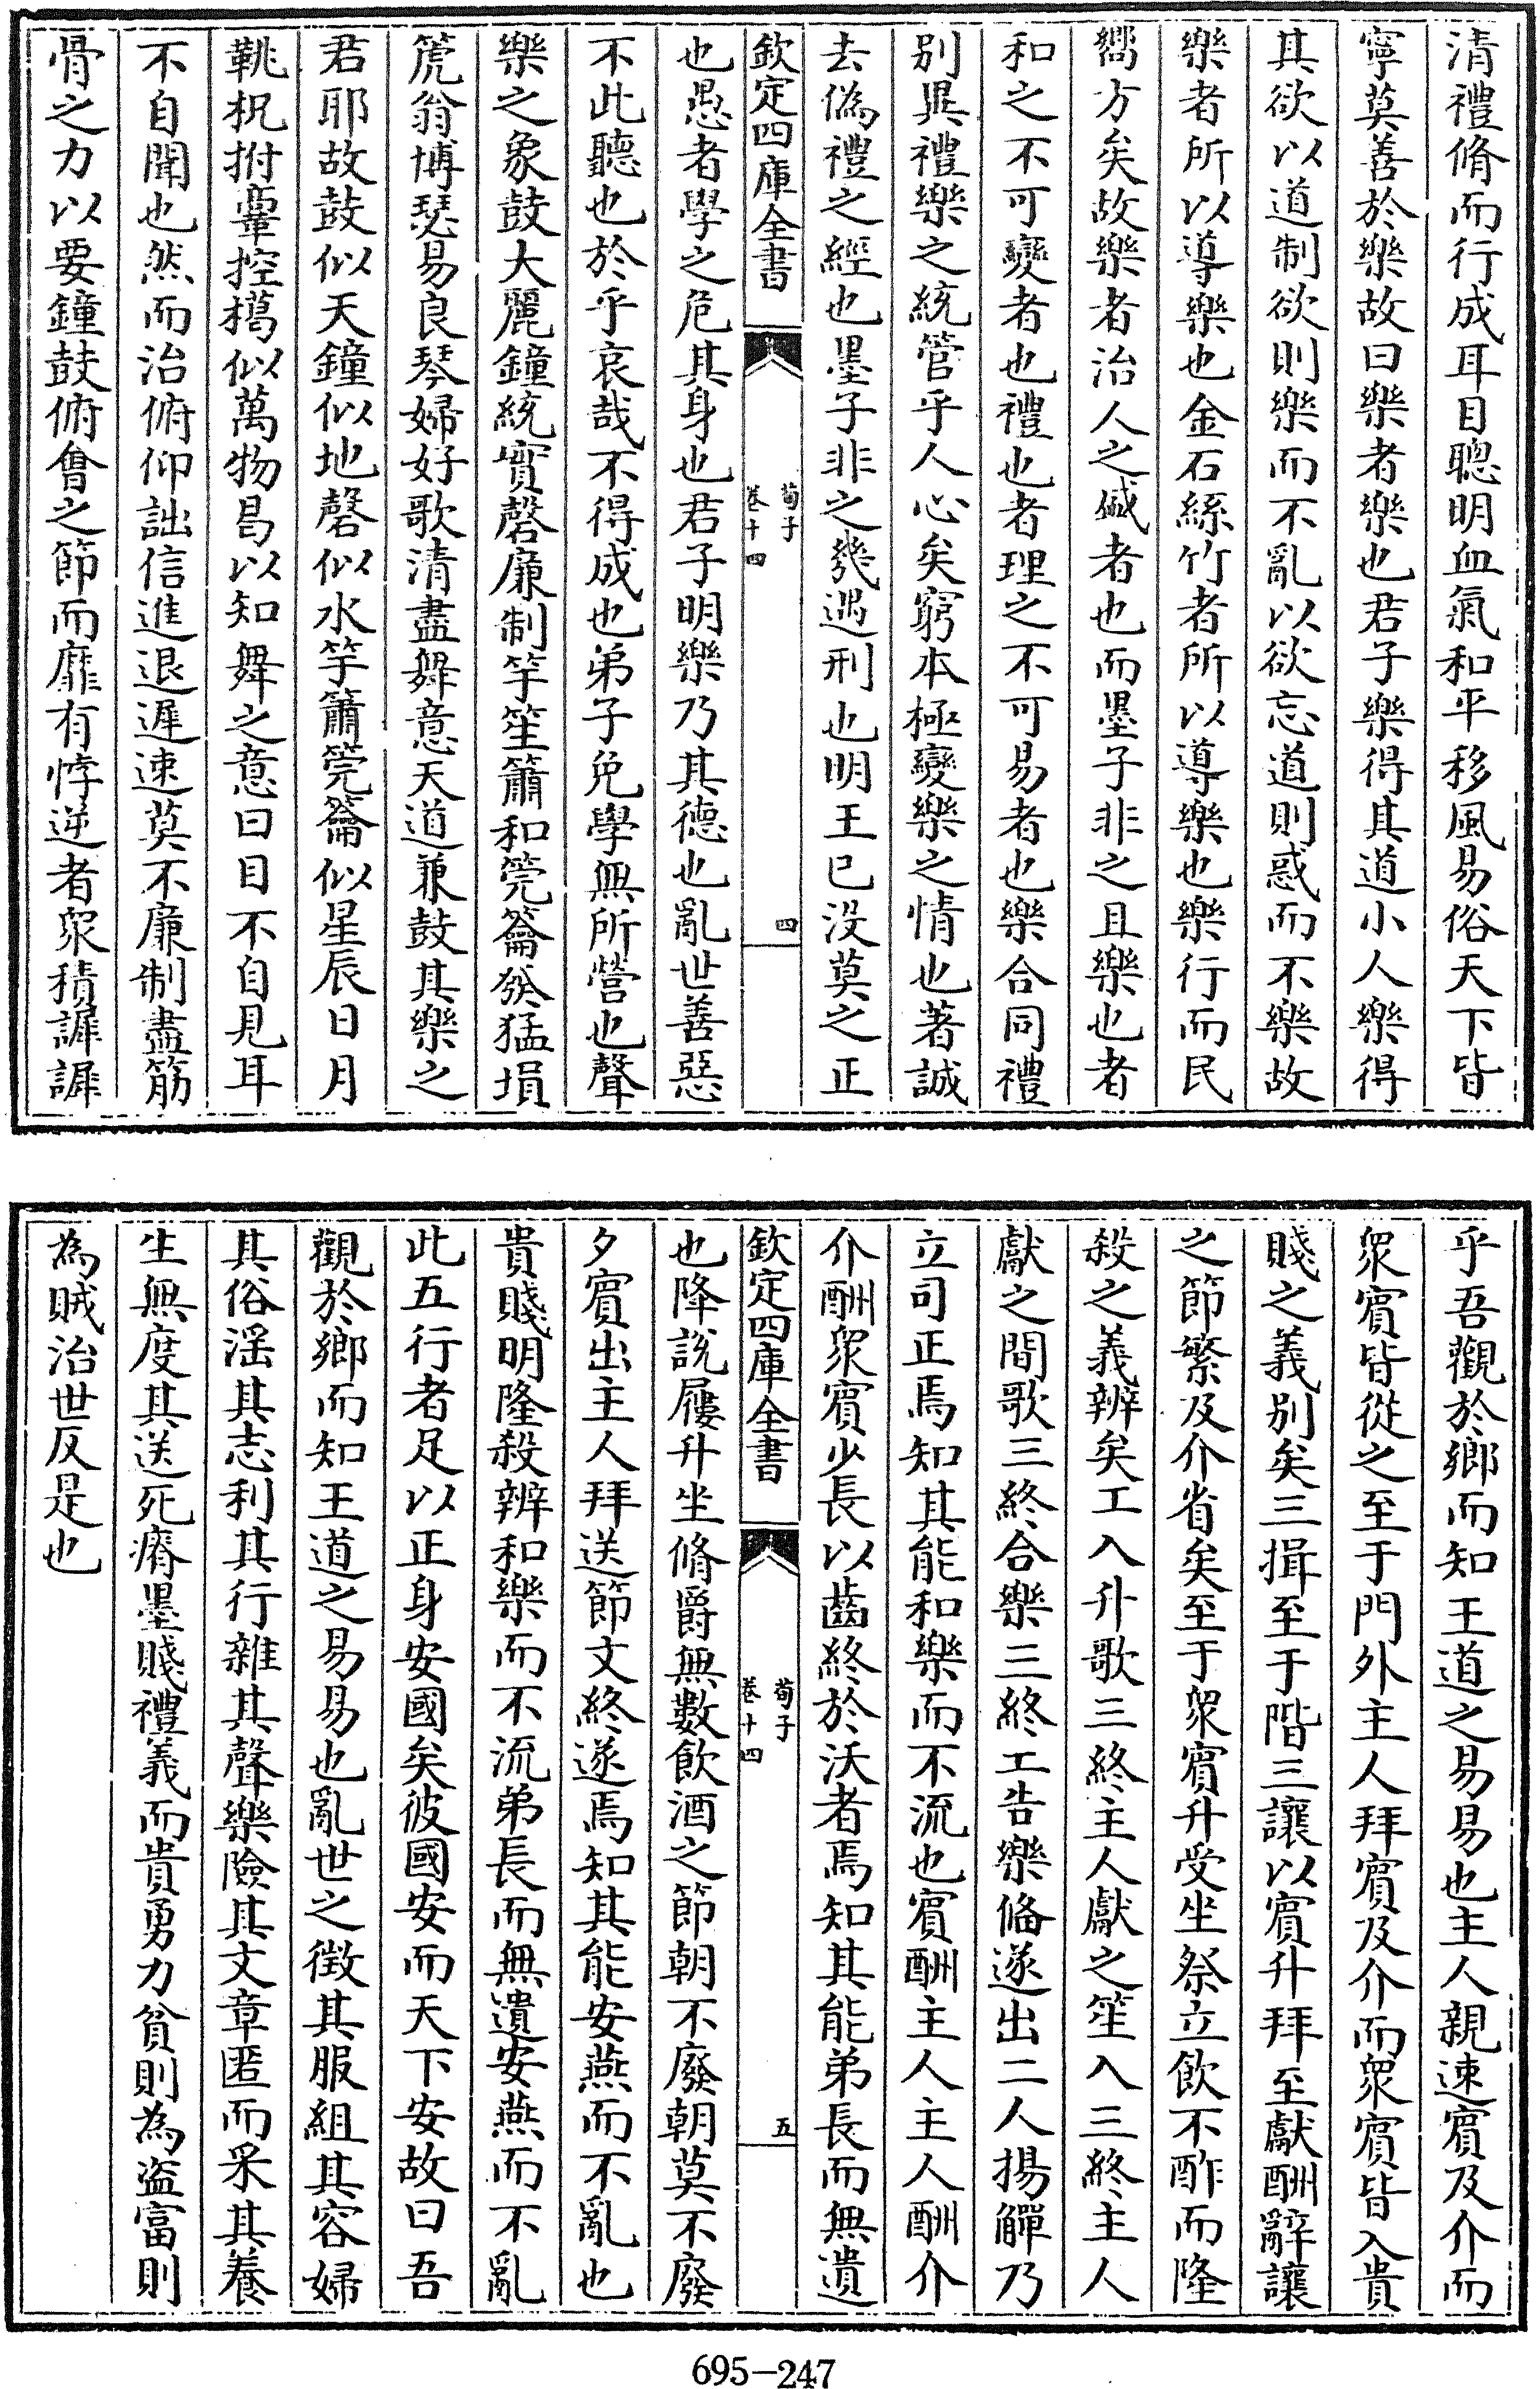 清禮脩而行成耳目聰明血氣和平移風易俗天下皆
寧莫善於樂故曰樂者樂也君子樂得其道小人樂得
其欲以道制欲則樂而不亂以欲忘道則惑而不樂故
樂者所以導樂也金石絲竹者所以導樂也樂行而民
嚮方矣故樂者治人之盛者也而墨子非之且樂也者
和之不可變者也禮也者理之不可易者也樂合同禮
別異禮樂之統管乎人心矣窮本極變樂之情也著誠
去偽禮之經也墨子非之幾遇刑也明王已沒莫之正
欽定四庫全書
荀子
卷十四
四
也愚者學之危其身也君子明樂乃其德也亂世善惡
不此聽也於乎哀哉不得成也弟子免學無所營也聲
樂之象鼓大麗鐘統實磬廉制竽笙簫和筦籥發猛塤
箎翁博瑟易良琴婦好歌清盡舞意天道兼鼓其樂之
君耶故鼓似天鐘似地磬似水竽簫筦籥似星辰日月
鞉柷拊鞷控楬似萬物曷以知舞之意曰目不自見耳
不自聞也然而治俯仰詘信進退遲速莫不廉制盡筋
骨之力以要鐘鼓俯會之節而靡有悖逆者衆積謘謘
乎吾觀於鄉而知王道之易易也主人親速賓及介而
衆賓皆從之至于門外主人拜賓及介而衆賓皆入貴
賤之義別矣三揖至于階三讓以賓升拜至獻酬辭讓
之節繁及介省矣至于衆賓升受坐祭立飲不酢而隆
殺之義辨矣工入升歌三終主人獻之笙入三終主人
獻之間歌三終合樂三終工告樂偹遂出二人揚觶乃
立司正焉知其能和樂而不流也賓酬主人主人酬介
介酬衆賓少長以齒終於沃者焉知其能弟長而無遺
欽定四庫全書
荀子
卷十四
五
也降說屨升坐脩爵無數飲酒之節朝不廢朝莫不廢
夕賓出主人拜送節文終遂焉知其能安燕而不亂也
貴賤明隆殺辨和樂而不流弟長而無遺安燕而不亂
此五行者足以正身安國矣彼國安而天下安故曰吾
觀於鄉而知王道之易易也亂世之徵其服組其容婦
其俗滛其志利其行雜其聲樂險其文章匿而采其養
生無度其送死瘠墨賤禮義而貴勇力貧則為盜富則
為賊治世反是也
695-247